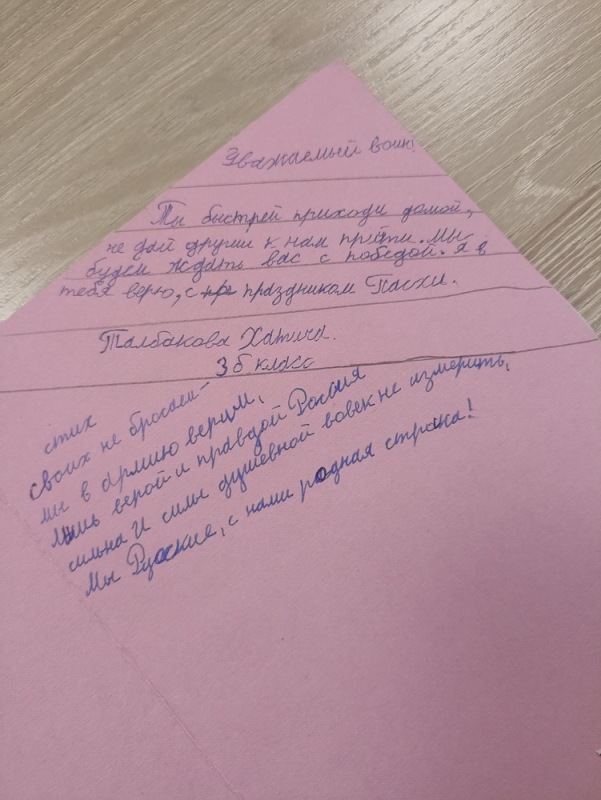 Уважаемый воин!
Ты быстрей приходи домой,
не дай другим к нам прийти. Мы
будем ждать вас с победой. Я в
тебя верю, с праздником Пасхи.
Талбакова Хатича.
3б класс
стих
своих не бросаем-
мы в армию верим,
лишь верой и правдой Россия
сильна И силы душевной вовек не измерить,
Мы Русские, с нами родная страна!